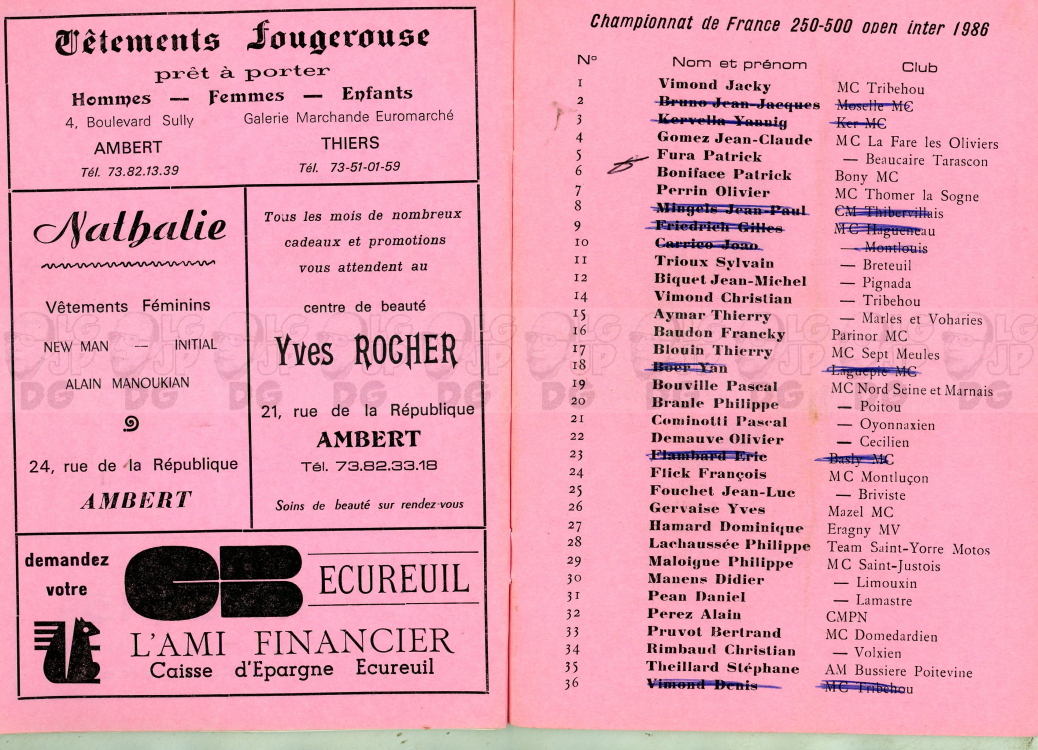 Vêtements Fougerouse
prêt à porter
Hommes — Femmes — Enfants
4, Boulevard Sully
AMBERT
Tél. 73.82.13.39
Galerie Marchande Euromarché
THIERS
Tél. 73-51-01-59
Nathalie
Vêtements Féminins
NEW MAN — INITIAL
ALAIN MANOUKIAN
24, rue de la République
AMBERT
Tous les mois de nombreux
cadeaux et promotions
vous attendent au
centre de beauté
Yves ROCHER
21, rue de la République
AMBERT
Tél. 73.82.33.18
Soins de beauté sur rendez-vous
demandez
votre
CB
ECUREUIL
L'AMI FINANCIER
Caisse d'Epargne Ecureuil
Championnat de France 250-500 open inter 1986
N° Nom et prénom Club
1 Vimond Jacky MC Tribehou
2 Bruno Jean-Jacques Moselle MC
3 Kervella Yannig Ker MC
4 Gomez Jean-Claude MC La Fare les Oliviers
5 Fura Patrick — Beaucaire Tarascon
6 Boniface Patrick Bony MC
7 Perrin Olivier MC Thomer la Sogne
8 Mingels Jean-Paul CM Thibervillais
9 Friedrich Gilles MC Hagueneau
10 Carrico Joao — Montlouis
11 Trioux Sylvain — Breteuil
12 Biquet Jean-Michel — Pignada
14 Vimond Christian — Tribehou
15 Aymar Thierry — Marles et Voharies
16 Baudon Francky Parinor MC
17 Blouin Thierry MC Sept Meules
18 Boer Yan Laguepie MC
19 Bouville Pascal MC Nord Seine et Marnais
20 Branle Philippe — Poitou
21 Cominotti Pascal — Oyonnaxien
22 Demauve Olivier — Cecilien
23 Flambard Eric Basly MC
24 Flick François MC Montluçon
25 Fouchet Jean-Luc — Briviste
26 Gervaise Yves Mazel MC
27 Hamard Dominique Eragny MV
28 Lachaussée Philippe Team Saint-Yorre Motos
29 Maloigne Philippe MC Saint-Justois
30 Manens Didier — Limouxin
31 Pean Daniel — Lamastre
32 Perez Alain CMPN
33 Pruvot Bertrand MC Domedardien
34 Rimbaud Christian — Volxien
35 Theillard Stéphane AM Bussiere Poitevine
36 Vimond Denis MC Tribehou